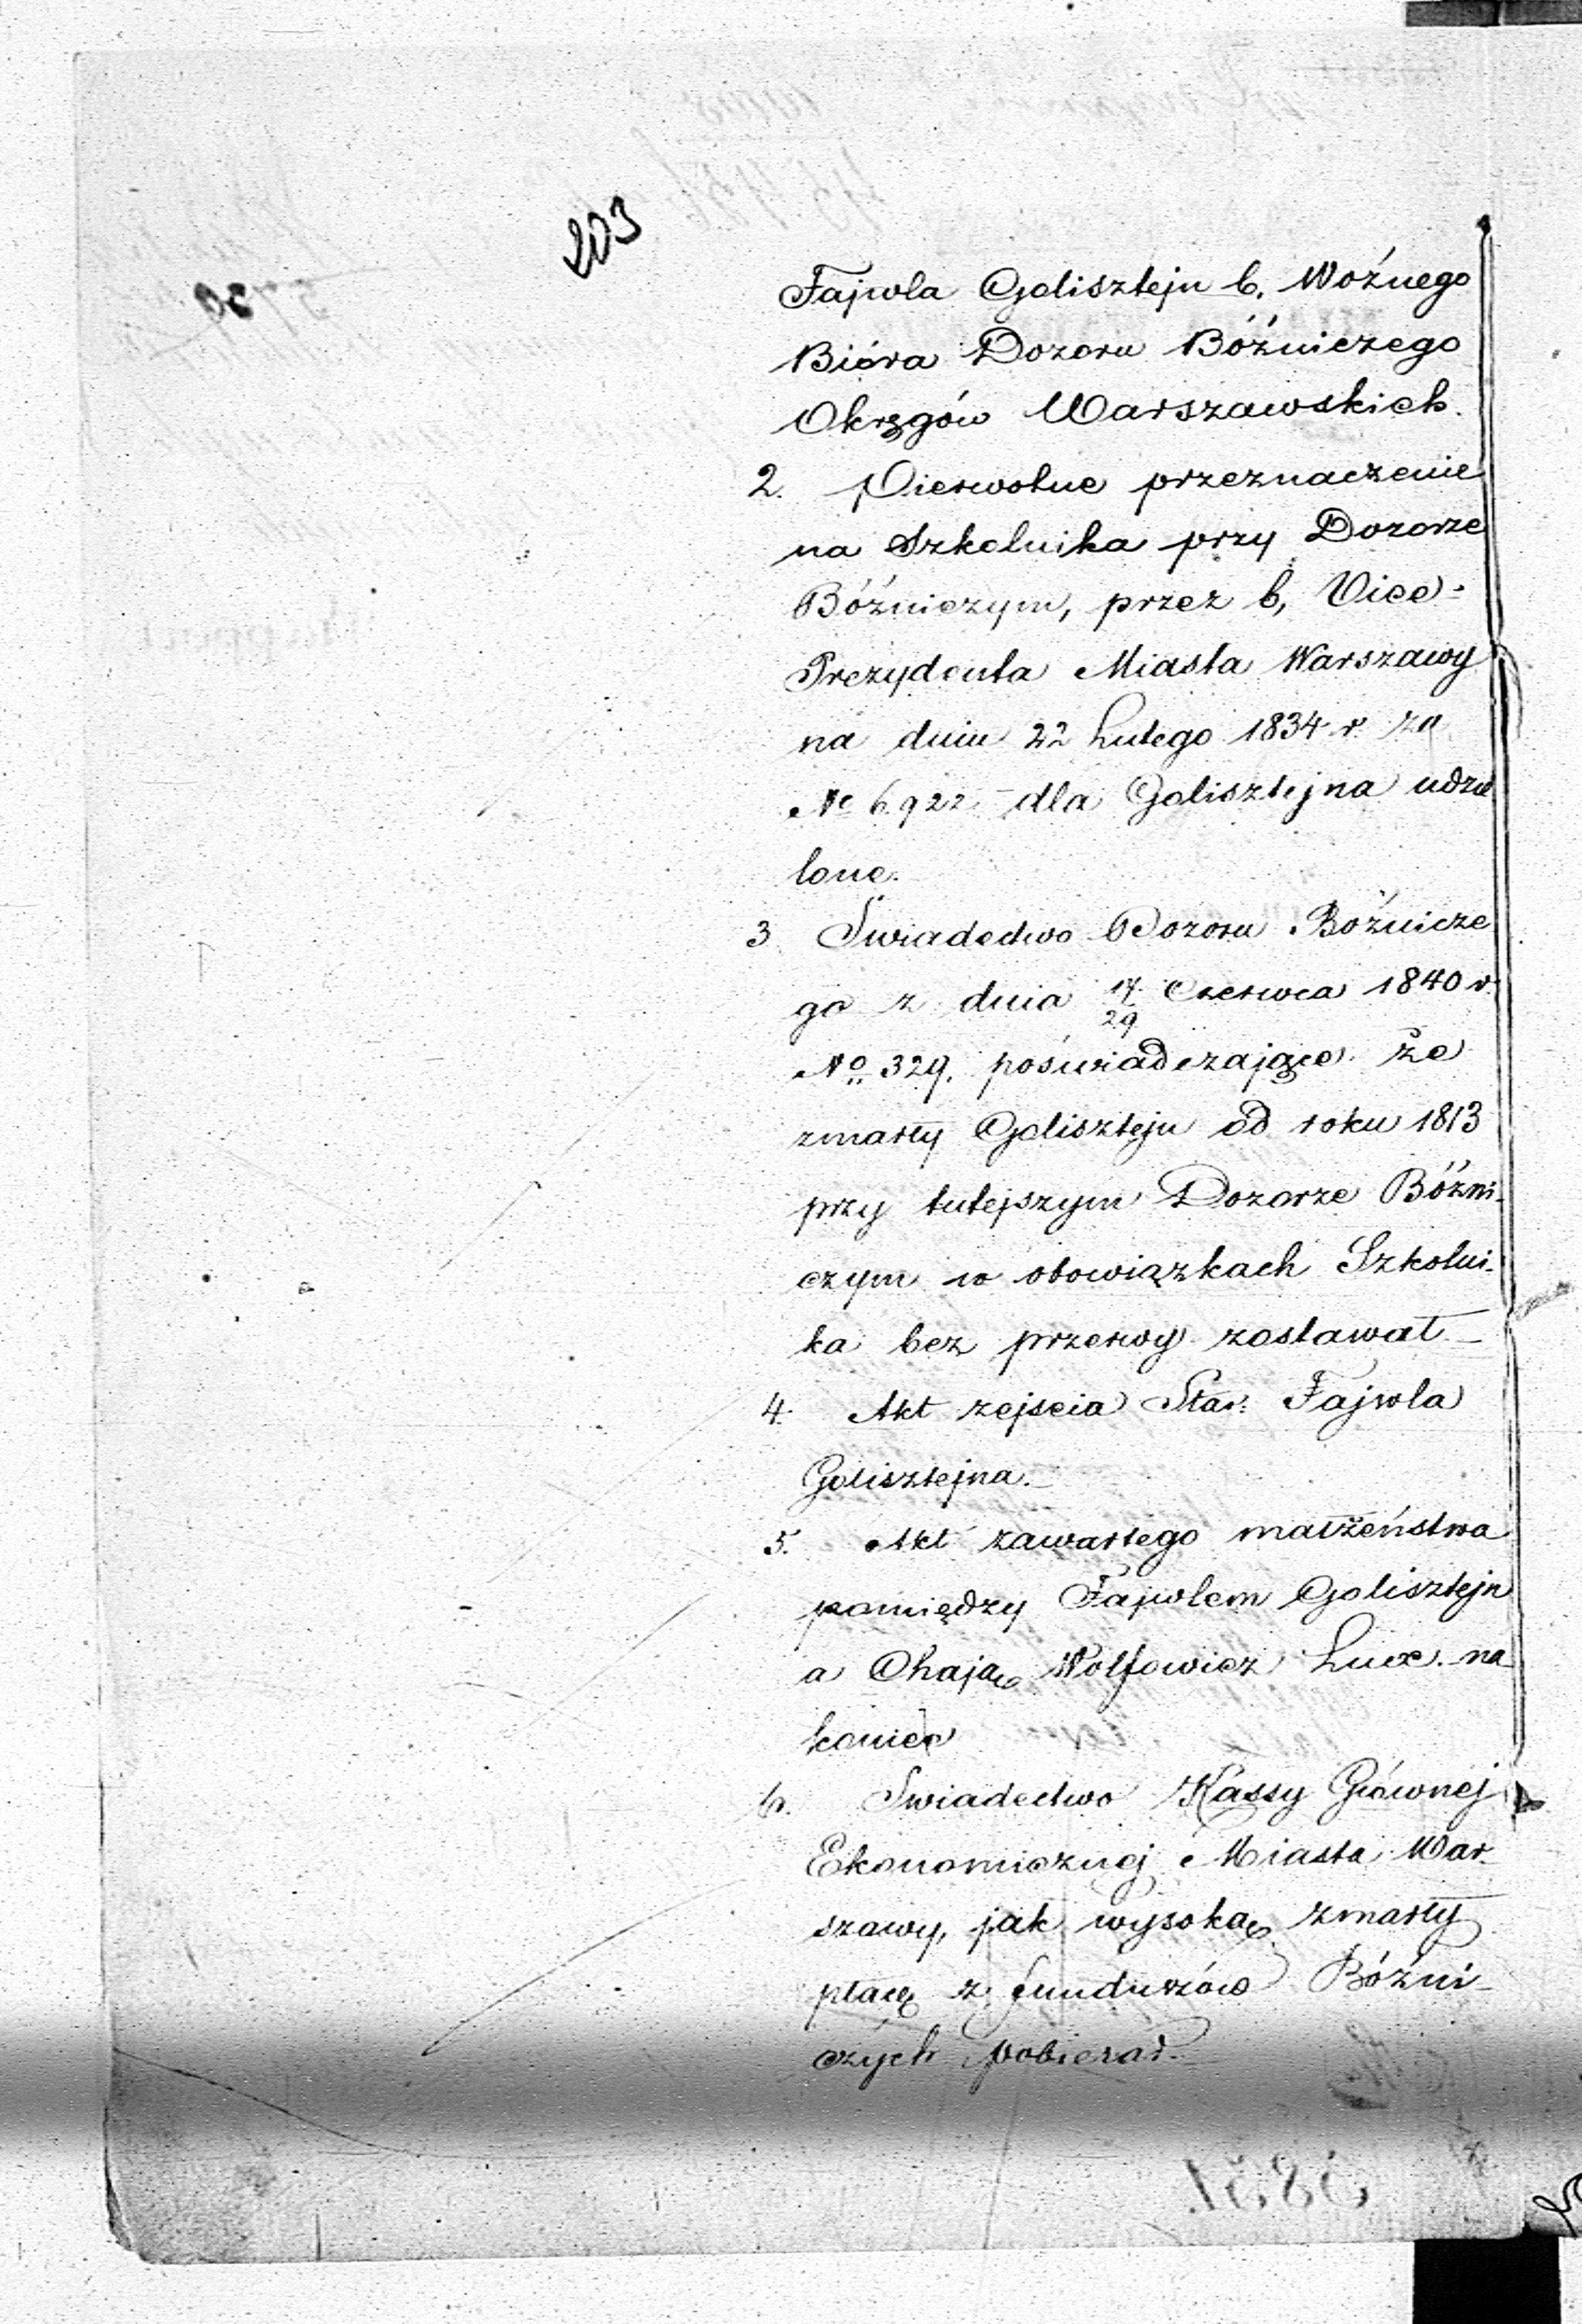 203
Fajwla Golisztejn b. Woźnego
Bióra Dozoru Bóźniczego
Okręgów Warszawskich.
2. Pierwotne przeznaczenie
na Szkolnika przy Dozorze
Bóźniczym, przez b, Vice-
Prezydenta Miasta Warszawy
na dniu 22 Lutego 1834 r za
No 6922 dla Golisztejna udzie
lone.
3 Swiadectwo Dozoru Bóźnicze
go z dnia 17/29 Czerwca 1840 r.
No 329, poświadczające że
zmarły Golisztejn od roku 1813
przy tutejszym Dozorze Bóźni-
czym w obowiązkach Szkolni-
ka bez przerwy zostawał
4. Akt zejscia Star: Fajwla
Golisztejna.
5. Akt zawartego małżeństwa
pomiędzy Fajwlem Golisztejn
a Chają Wolfowicz na
koniec
6. Swiadectwo Kassy Głównej
Ekonomicznej Miasta War-
szawy, jak wysoką zmarły
płacę z funduszów Bóźni-
czych pobierał.